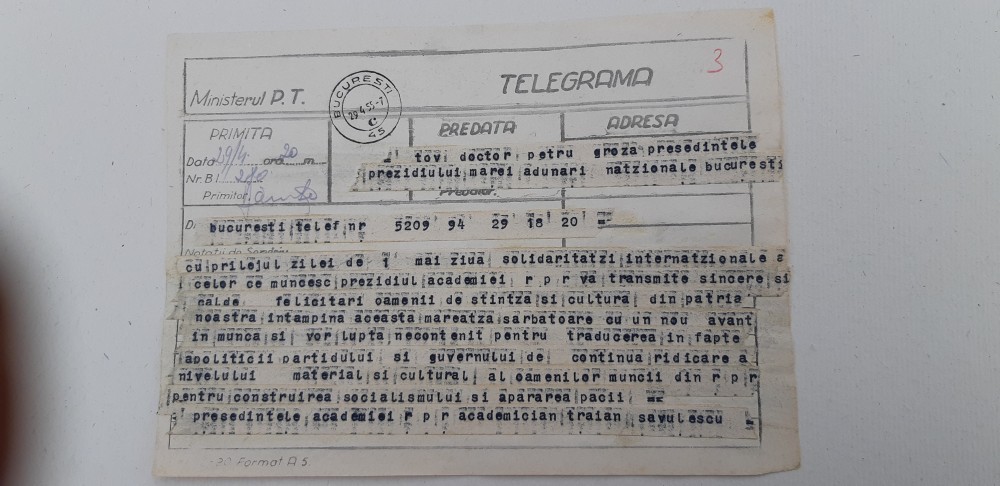 3
Ministerul P.T.
TELEGRAMA
BUCUREȘTI
29.4.55-7
C
45
PRIMITA
PREDATA
ADRESA
Data 29/4 ora 20 m
Nr. B.I.
Primitor
tov doctor petru groza presedintele
prezidiului marei adunari natzionale bucuresti
Predator
bucuresti telef nr 5209 94 29 18 20 =
cu prilejul zilei de 1 mai ziua solidaritatzi internatzionale a
celor ce muncesc prezidiul academiei r p r va transmite sincere si
calde felicitari oamenii de stintza si cultura din patria
noastra intampina aceasta mareatza sarbatoare cu un nou avant
in munca si vor lupta necontenit pentru traducerea in fapte
apoliticii partidului si guvernului de continua ridicare a
nivelului material si cultural al oamenilor muncii din r p r
pentru construirea socialismului si apararea pacii =
presedintele academiei r p r academician traian savulescu =
Format A 5